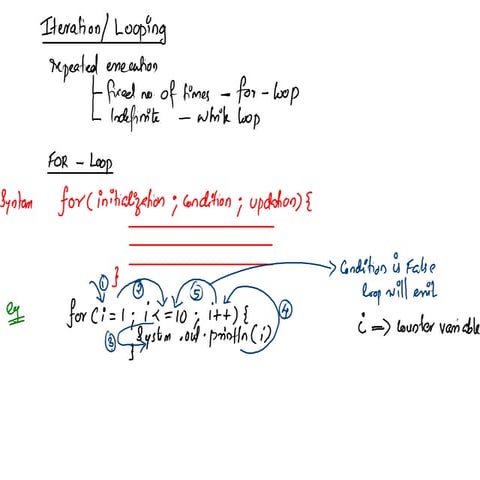 Iteration/Looping
repeated execution
fixed no of times - for - loop
Indefinite - while loop
FOR - Loop
Syntax for(initialization ; condition ; updation) {
}
Condition is False
loop will exit
eg for(i=1 ; i<=10 ; i++) {
System.out.println(i)
}
i => Counter variable
1
2
3
4
5